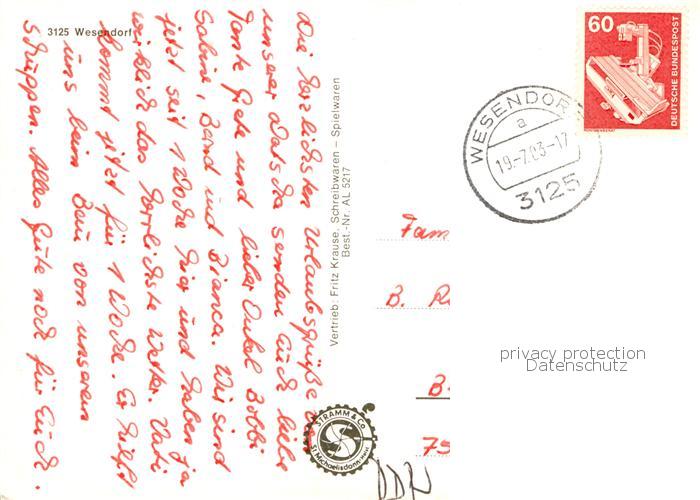 3125 Wesendorf
Die herzlichsten Urlaubsgrüße von
unserer Datscha senden Euch liebe
Tante Grete und lieber Onkel Bobbi
Sabine, Bernd und Bianca. Wir sind
jetzt seit 1 Woche hier und haben ja
wirklich das herrlichste Wetter. Vati
kommt jetzt für 1 Woche. Er hilft
uns beim Bau von unserem
Schuppen. Alles Gute noch für Euch.
Vertrieb: Fritz Krause, Schreibwaren – Spielwaren
Best.-Nr. AL 5217
STRAMM & Co.
St. Michaelisdonn
60
DEUTSCHE BUNDESPOST
WESENDORF
a
19.-7.83-17
3125
Fam
B. R
B.
75
DDR
privacy protection
Datenschutz